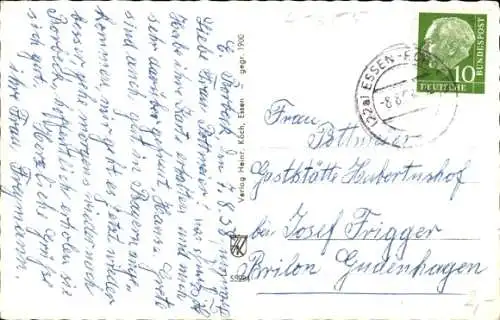 E. Borbeck den 7.8.58.
Liebe Frau Pottmeier! und
Habe ihre Karte erhalten und mich
sehr darüber gefreut. Hans, Greti
sind auch grad in Bayern
kommen
mir geht es jetzt wieder
besser gehe morgens wieder nach
Borbeck, hoffentlich erholen sie
sich gut. Herzliche Grüße
ihre Frau
Verlag Heinr. Koch, Essen gegr. 1900
(22a) ESSEN-
-8.8.5
10
DEUTSCHE
BUNDESPOST
Frau
Pottmeier
Gaststätte Hubertushof
bei Josef Frigger
Brilon Gudenhagen